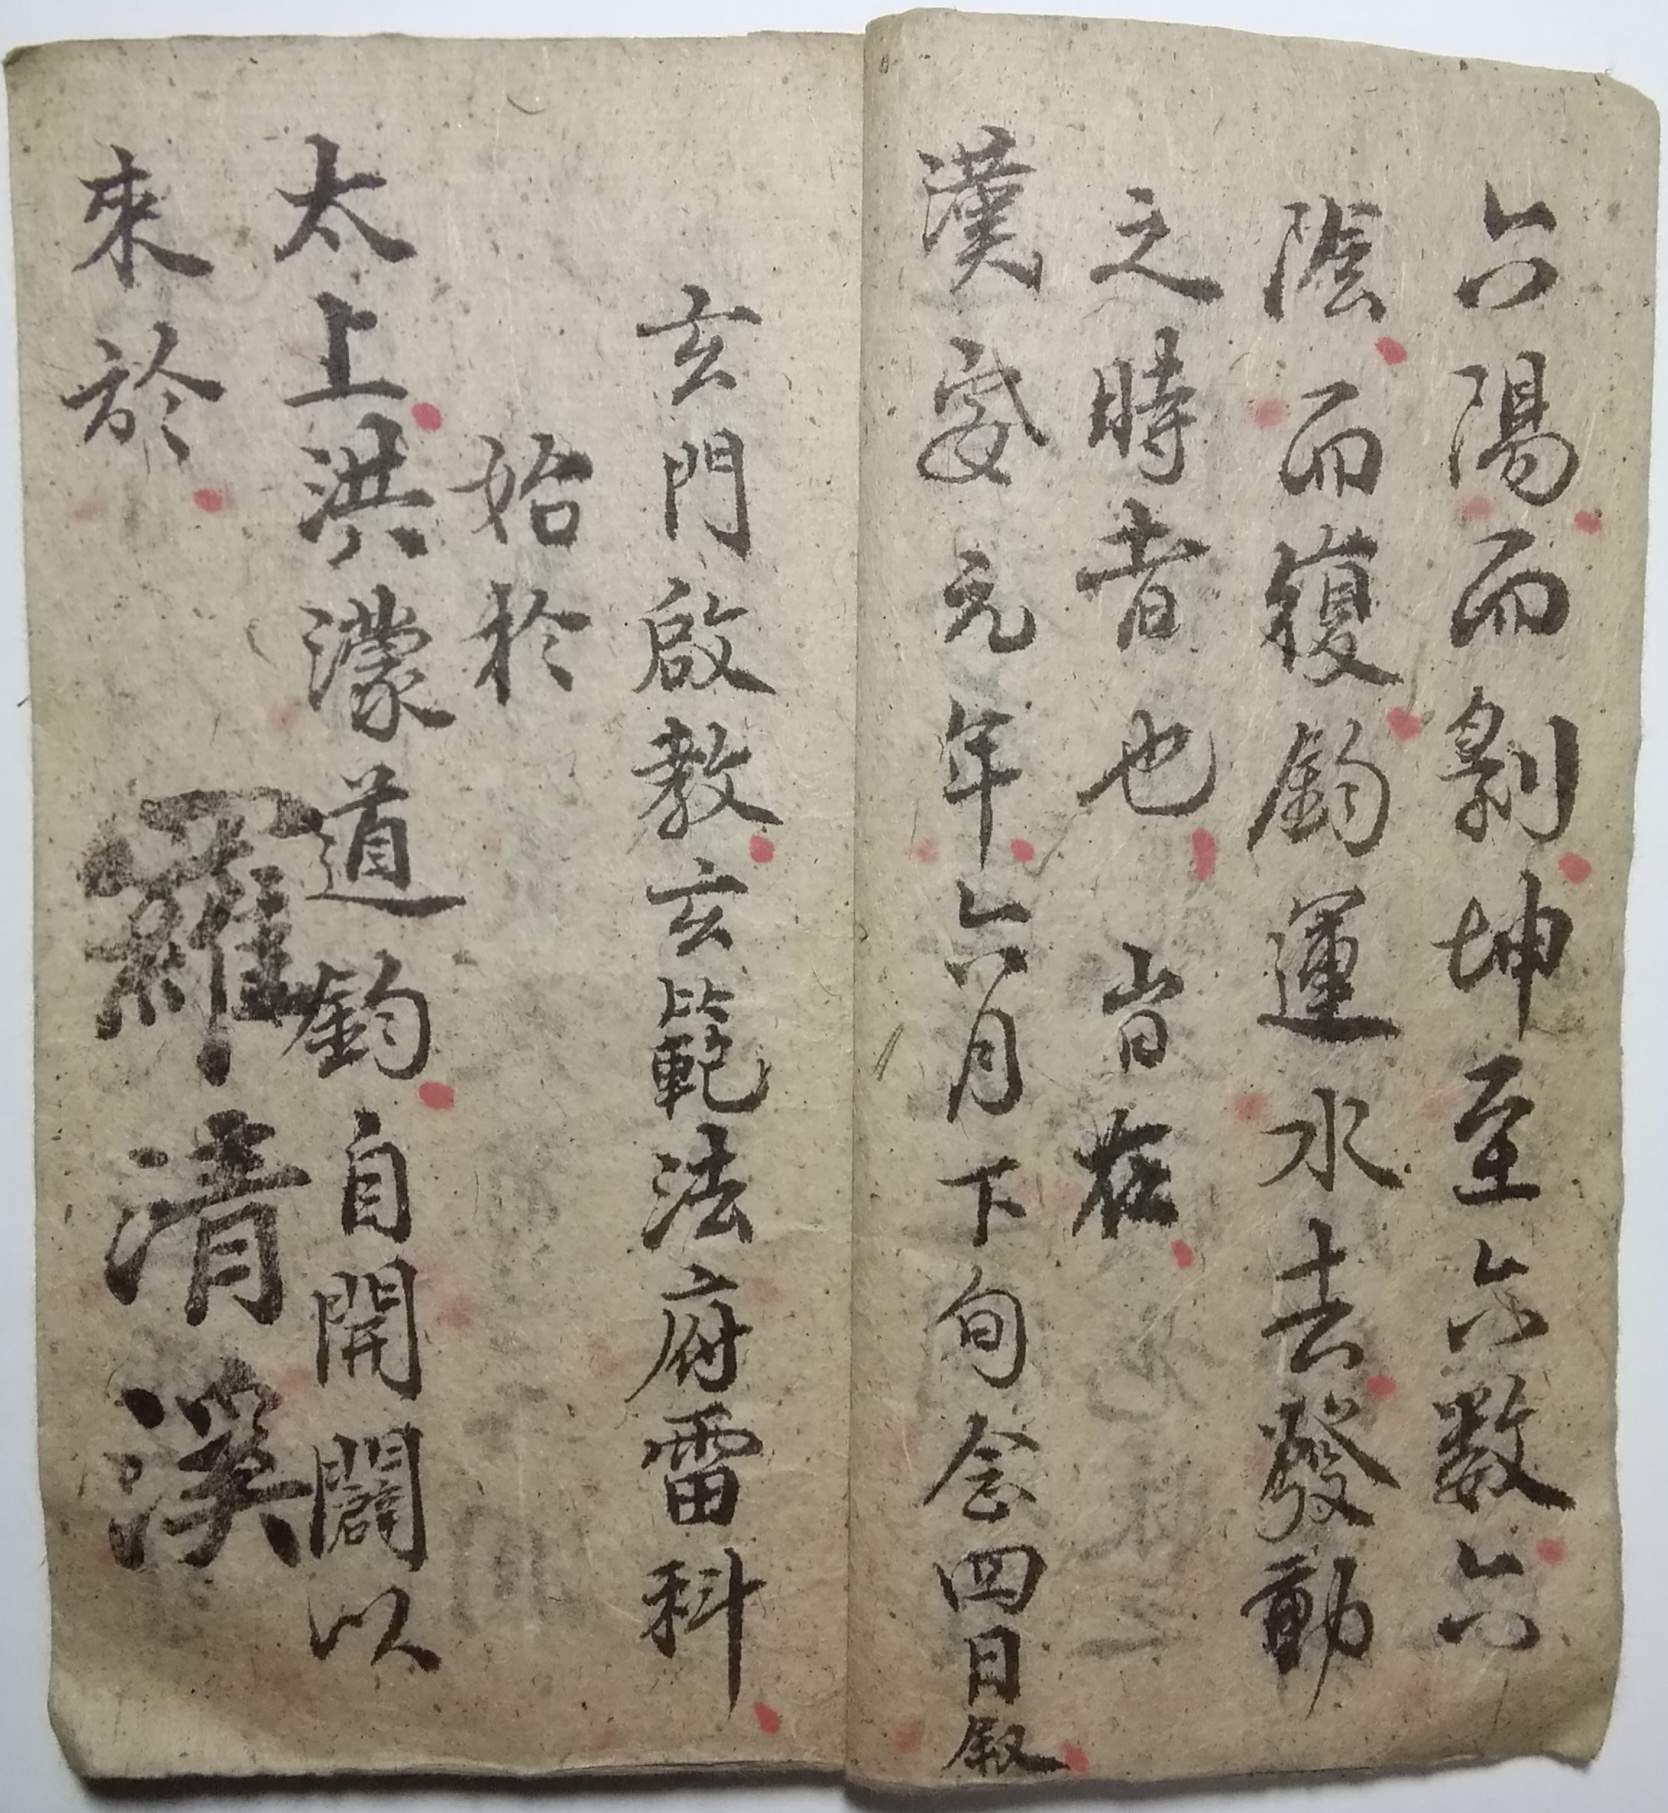 六陽而剝坤至六数六
陰而復鈞運水去發動
之時者也旹在
漢安元年六月下旬念四日叙
玄門啟教玄範法府雷科
始於
太上洪濛道鈞自開闢以
來於
羅清溪